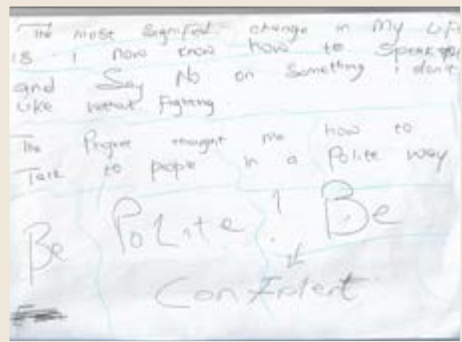 The most Signified change in my Life
is i now know how to Speak
and Say No on Something i don't
Like without Fighting.
The Progrm thought me how to
Talk to people in a Polite way
Be Polite! Be
Confident